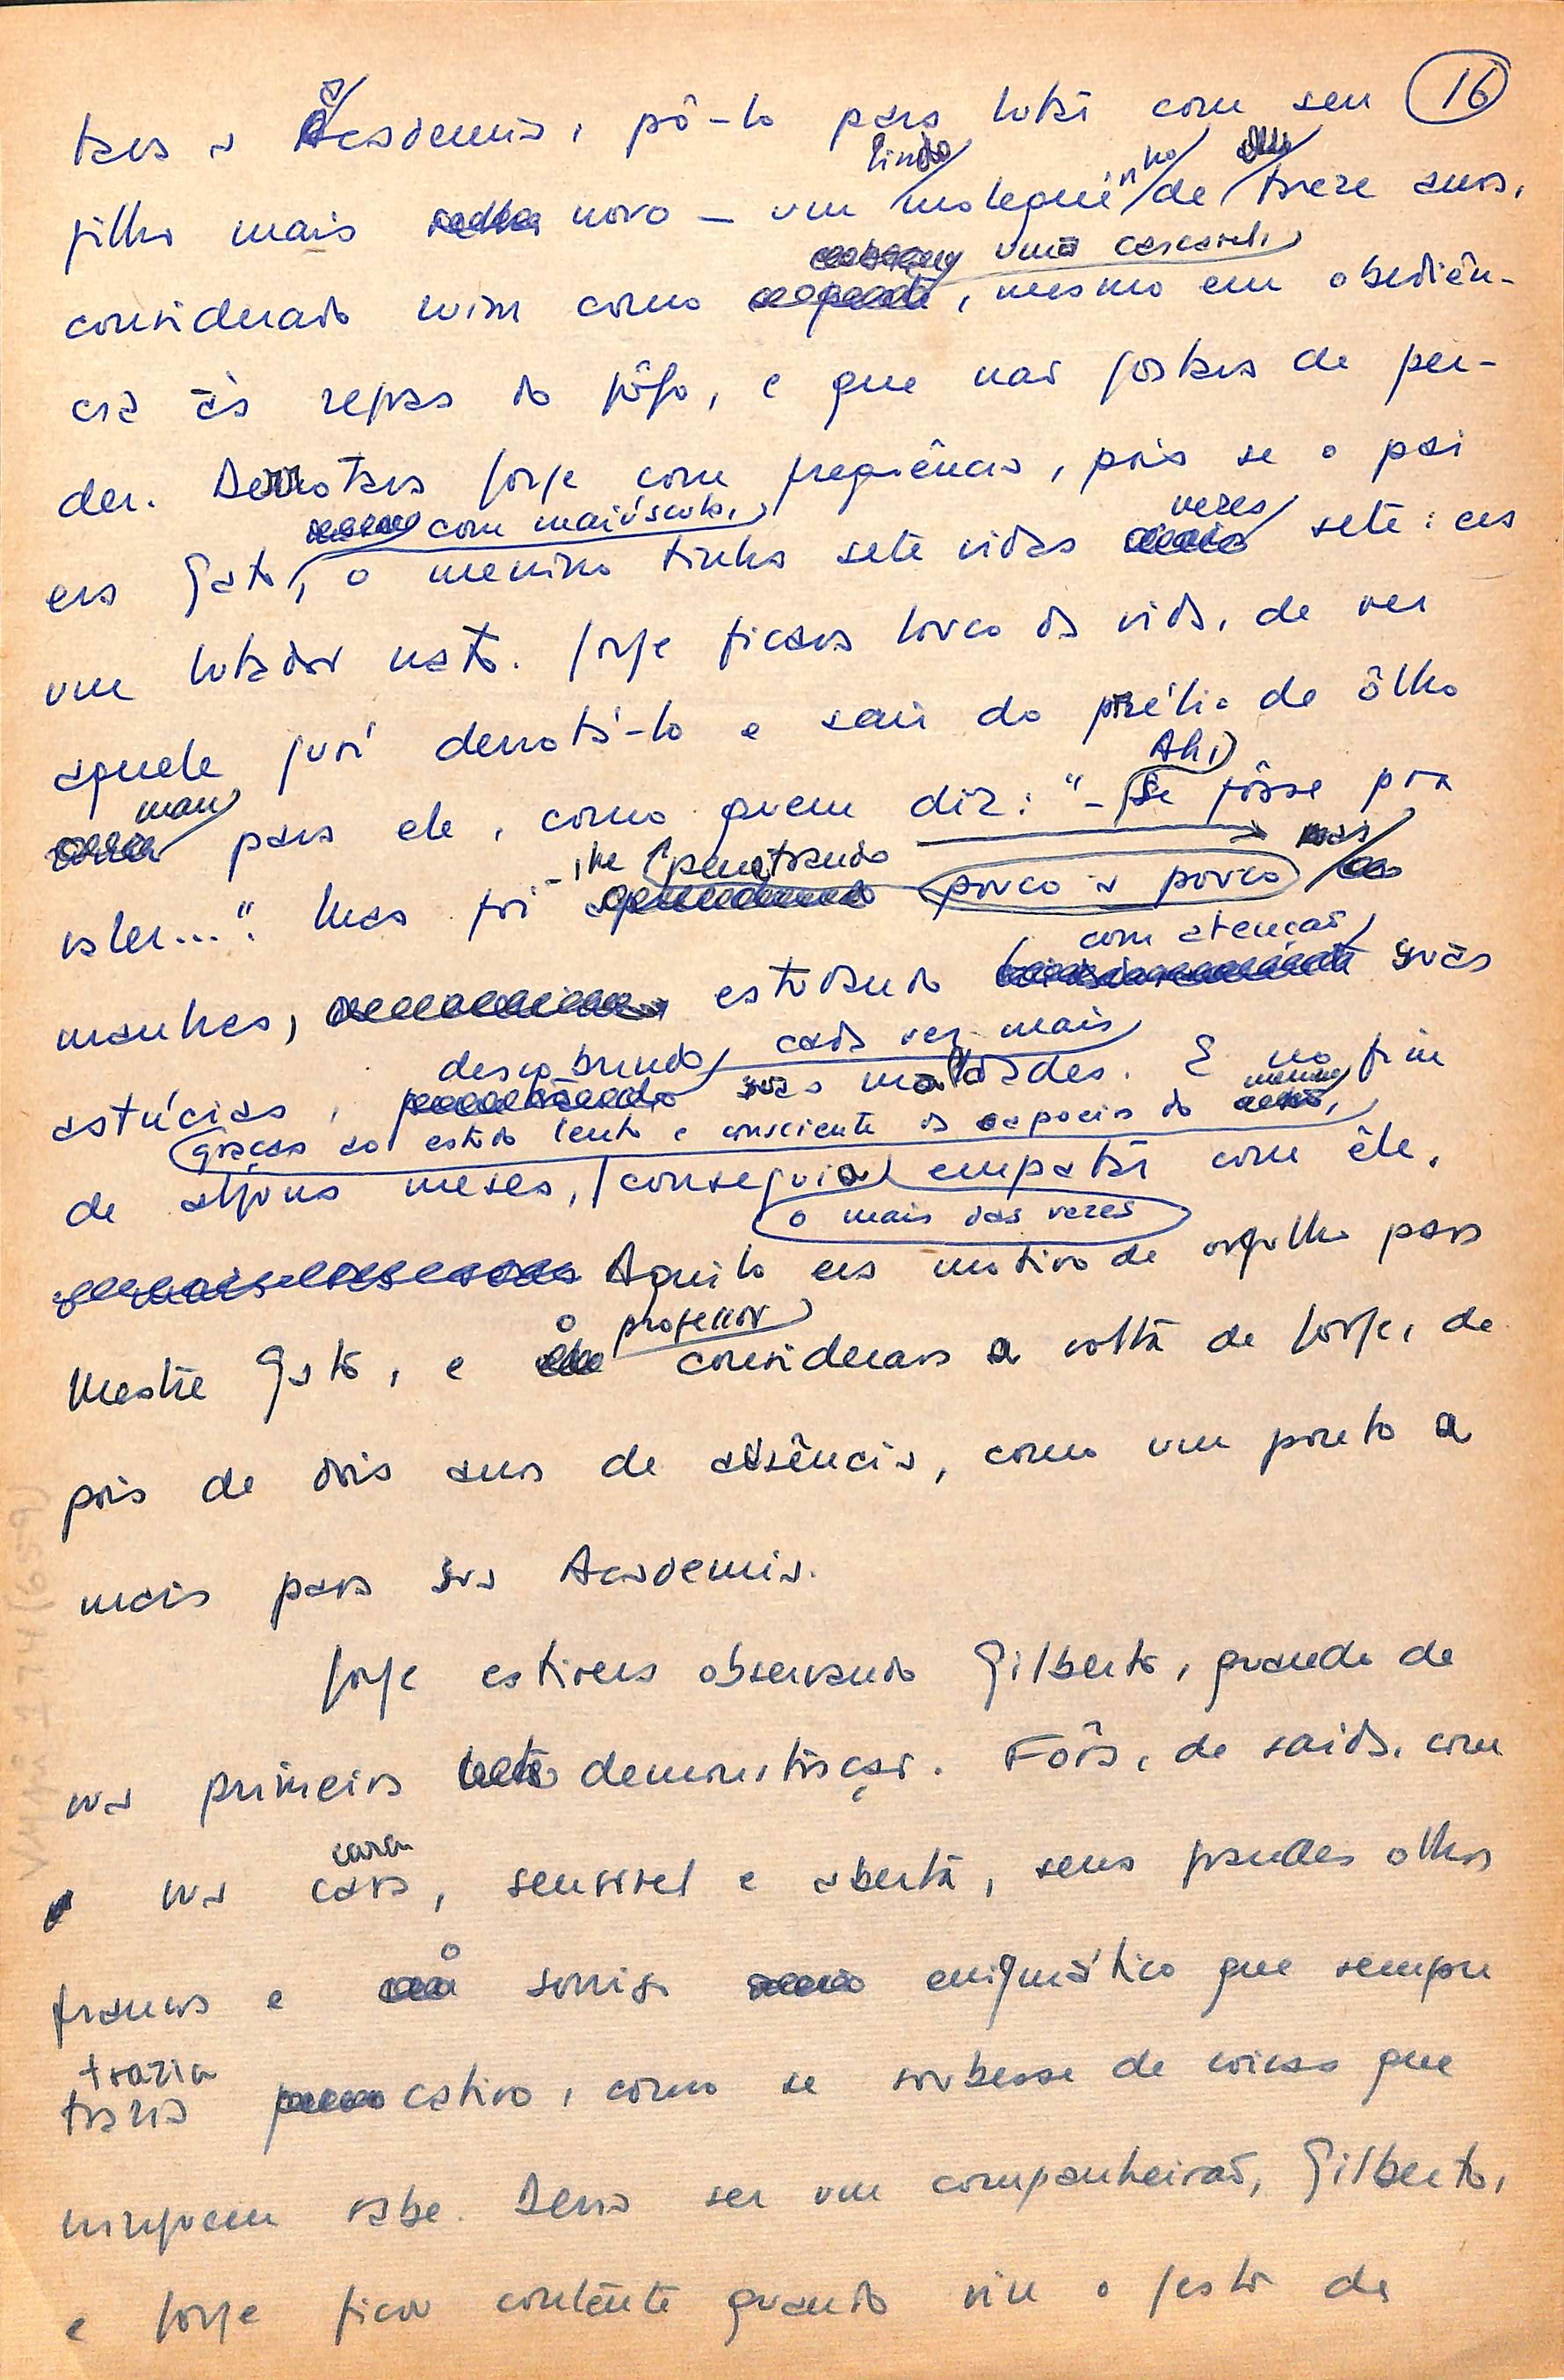 16
tava a Academia, pô-lo para lutar com seu
filho mais novo — um lindo molequinho de treze anos,
considerado ruim como uma cascavel, mesmo em obediên-
cia às regras do jôgo, e que não gostava de per-
der. Derrotava Jorge com freqüência, pois se o pai
era Gato, com maiúscula, o menino tinha sete vidas vezes sete: era
um lutador nato. Jorge ficava louco da vida, de ver
aquele guri derrotá-lo e sair do prélio de ôlho
mau para ele, como quem diz: "— Ah, Se fôsse pra
valer...". Mas foi-lhe penetrando pouco a pouco as
manhas, estudando com atenção suas
astúcias, descobrindo cada vez mais suas maldades. E no fim
de alguns meses, graças ao estudo lento e consciente da capoeira do menino, conseguia empatar com êle,
o mais das vezes
Aquilo era motivo de orgulho para
Mestre Gato, e o professor considerava a volta de Jorge, de
pois de dois anos de ausência, como um ponto a
mais para sua Academia.
Jorge estivera observando Gilberto, quando de
sua primeira demonstração. Fôra, de saída, com
sua cara cara, sensível e aberta, seus grandes olhos
francos e o sorriso enigmático que sempre
trazia trazia cativo, como se soubesse de coisas que
ninguém sabe. Devia ser um companheirão, Gilberto,
e Jorge ficou contente quando viu o gesto de